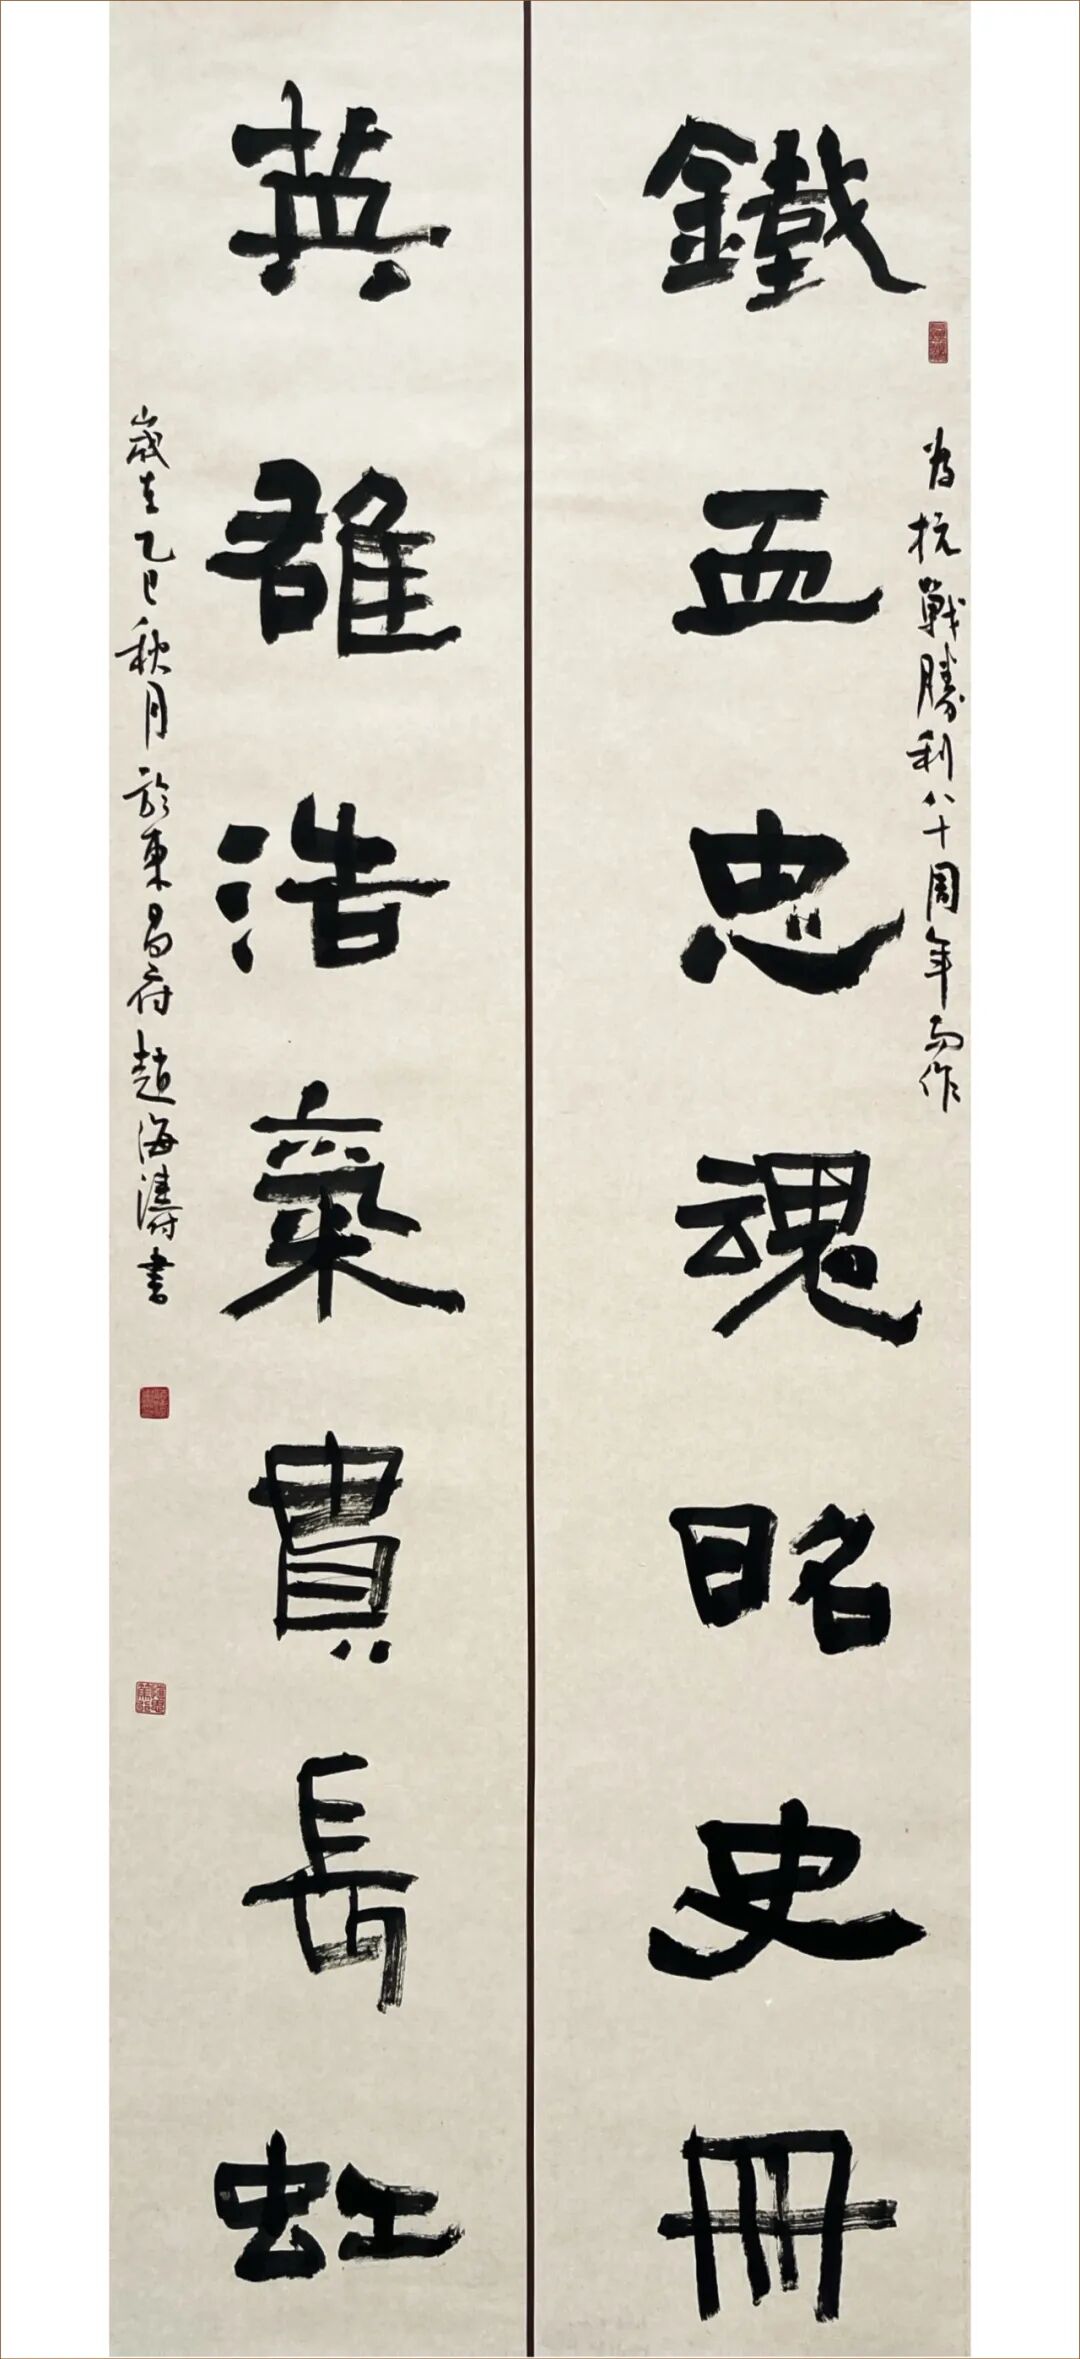 鐵血忠魂昭史冊
為抗戰勝利八十周年而作
英雄浩氣貫長虹
歲在乙巳秋月於東昌府趙海濤書